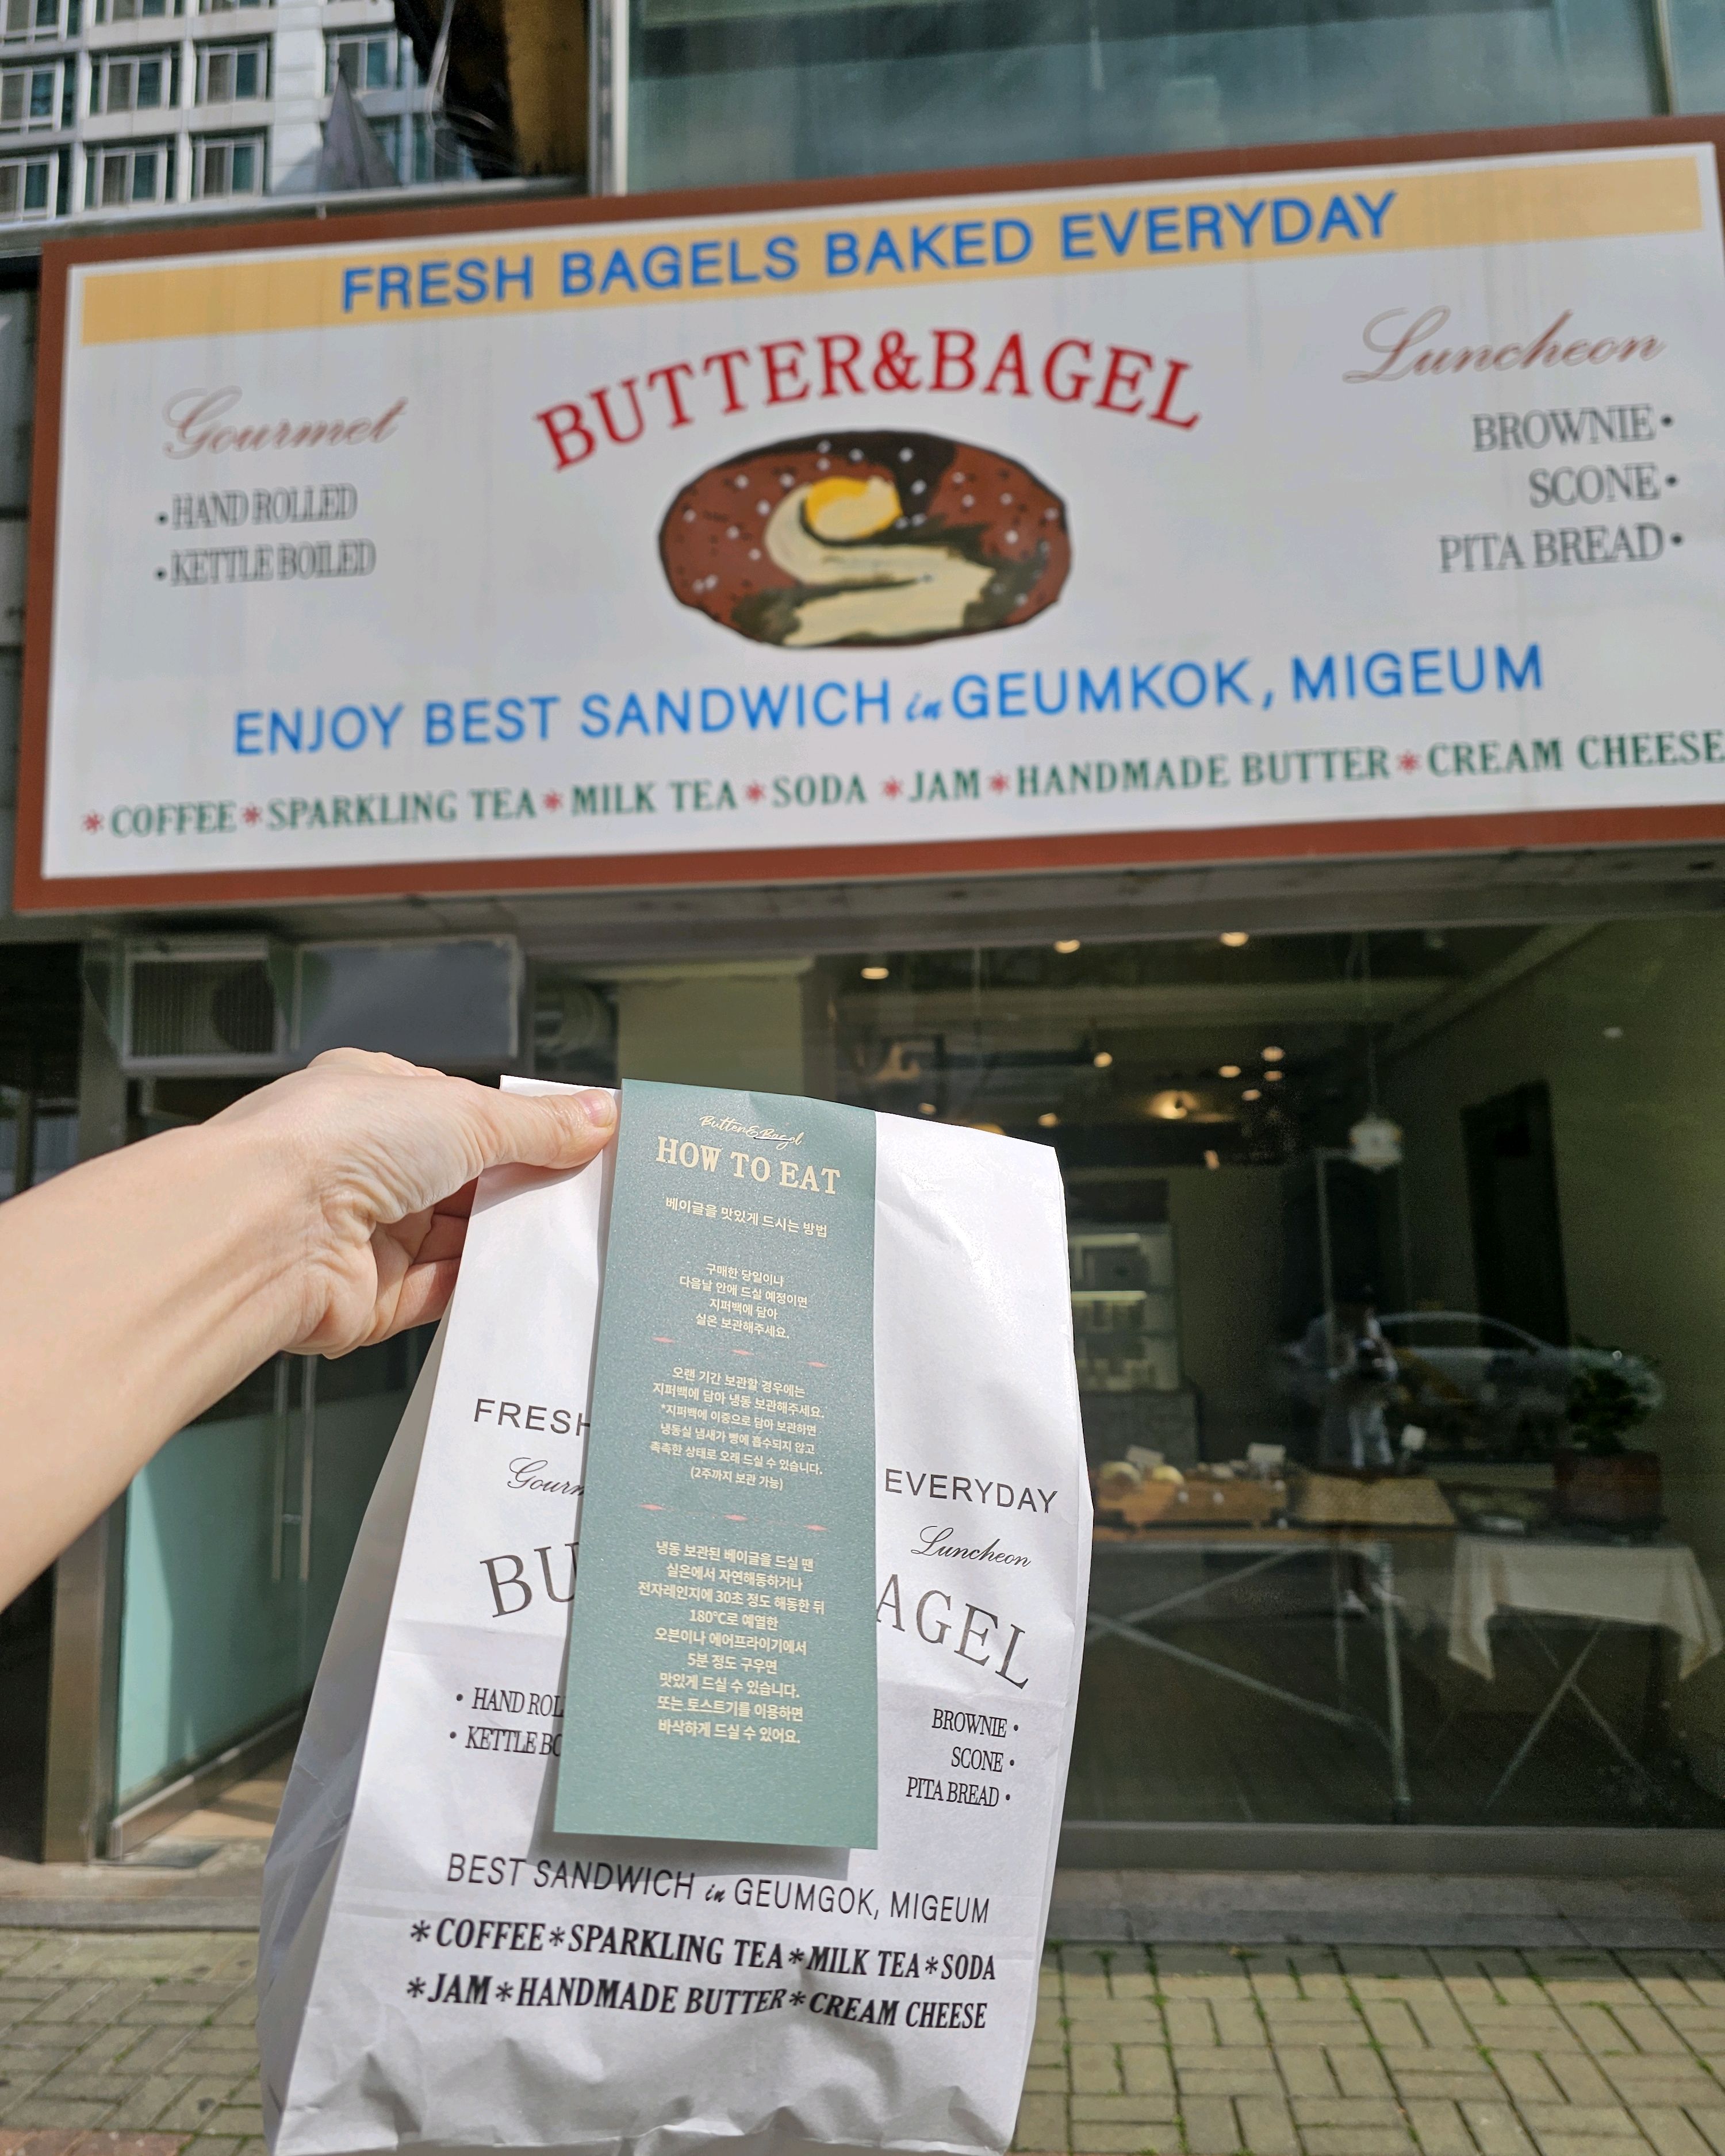 FRESH BAGELS BAKED EVERYDAY
BUTTER&BAGEL
Gourmet
•HAND ROLLED
•KETTLE BOILED
Luncheon
BROWNIE•
SCONE•
PITA BREAD•
ENJOY BEST SANDWICH in GEUMKOK, MIGEUM
*COFFEE*SPARKLING TEA*MILK TEA*SODA *JAM*HANDMADE BUTTER*CREAM CHEESE
Butter&Bagel
HOW TO EAT
베이글을 맛있게 드시는 방법
구매한 당일이나
다음날 안에 드실 예정이면
지퍼백에 담아
실온 보관해주세요.
오랜 기간 보관할 경우에는
지퍼백에 담아 냉동 보관해주세요.
*지퍼백에 이중으로 담아 보관하면
냉동실 냄새가 빵에 흡수되지 않고
촉촉한 상태로 오래 드실 수 있습니다.
(2주까지 보관 가능)
냉동 보관된 베이글을 드실 땐
실온에서 자연해동하거나
전자레인지에 30초 정도 해동한 뒤
180℃로 예열한
오븐이나 에어프라이기에서
5분 정도 구우면
맛있게 드실 수 있습니다.
또는 토스트기를 이용하면
바삭하게 드실 수 있어요.
FRESH
EVERYDAY
Gourm
Luncheon
BU
AGEL
• HAND ROL
• KETTLE BO
BROWNIE •
SCONE •
PITA BREAD •
BEST SANDWICH in GEUMGOK, MIGEUM
*COFFEE*SPARKLING TEA*MILK TEA*SODA
*JAM*HANDMADE BUTTER*CREAM CHEESE